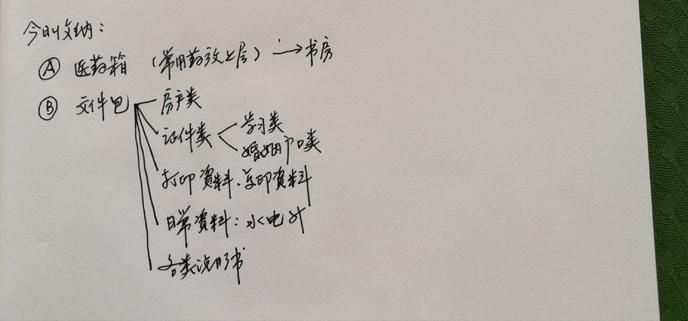 今日收纳：
Ⓐ 医药箱（常用药放上层）→书房
Ⓑ 文件包
房产类
证件类
学习类
婚姻户口类
打印资料、复印资料
日常资料：水电
各类说明书